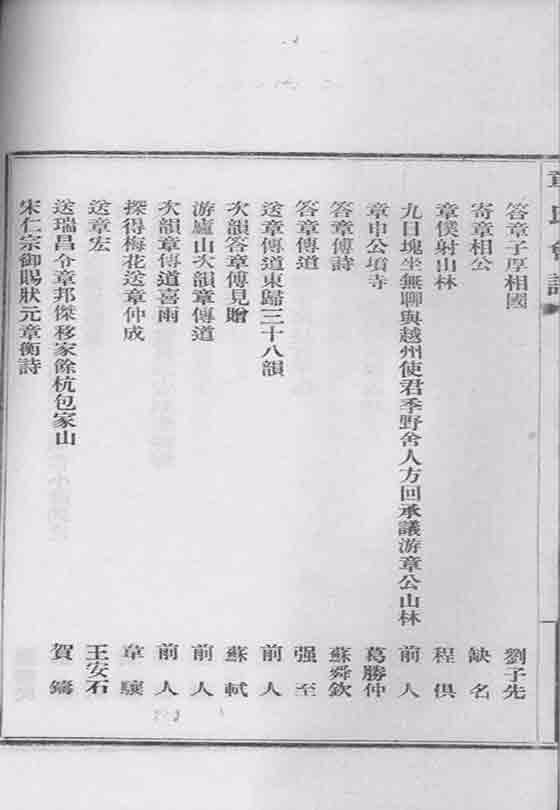 章氏會譜
答章子厚相國　劉子先
寄章相公　缺名
章僕射山林　程俱
九日塊坐無聊與越州使君季野舍人方回承議游章公山林　前人
章申公墳寺　葛勝仲
答章傅詩　蘇舜欽
答章傳道　强至
送章傳道東歸三十八韻　前人
次韻答章傳見贈　蘇軾
游廬山次韻章傳道　前人
次韻章傳道喜雨　前人
探得梅花送章仲成　韋驤
送章宏　王安石
送瑞昌令章邦傑移家餘杭包家山　賀鑄
宋仁宗御賜狀元章衡詩